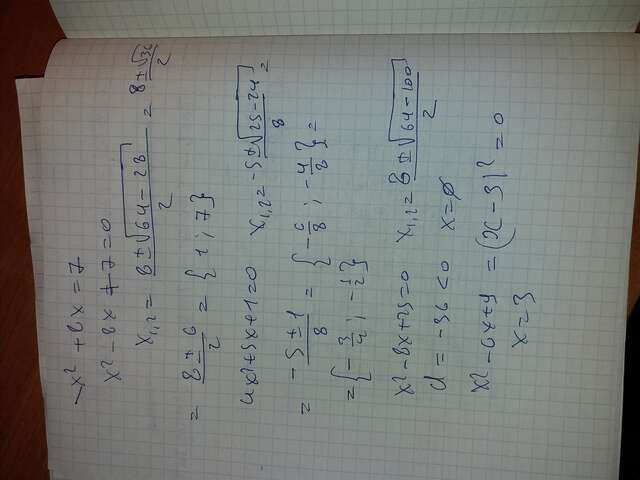 -x² + 8x = 7
x² - 8x + 7 = 0
x₁,₂ = (8 ± √(64 - 28))/2 = (8 ± √36)/2
= (8 ± 6)/2 = {1; 7}
4x² + 5x + 1 = 0 x₁,₂ = (-5 ± √(25 - 24))/8 =
= (-5 ± 1)/8 = {-6/8; -4/8} =
= {-3/4; -1/2}
x² - 8x + 25 = 0 x₁,₂ = (8 ± √(64 - 100))/2
d = -36 < 0 x = ∅
x² - 6x + 9 = (x - 3)² = 0
x = 3